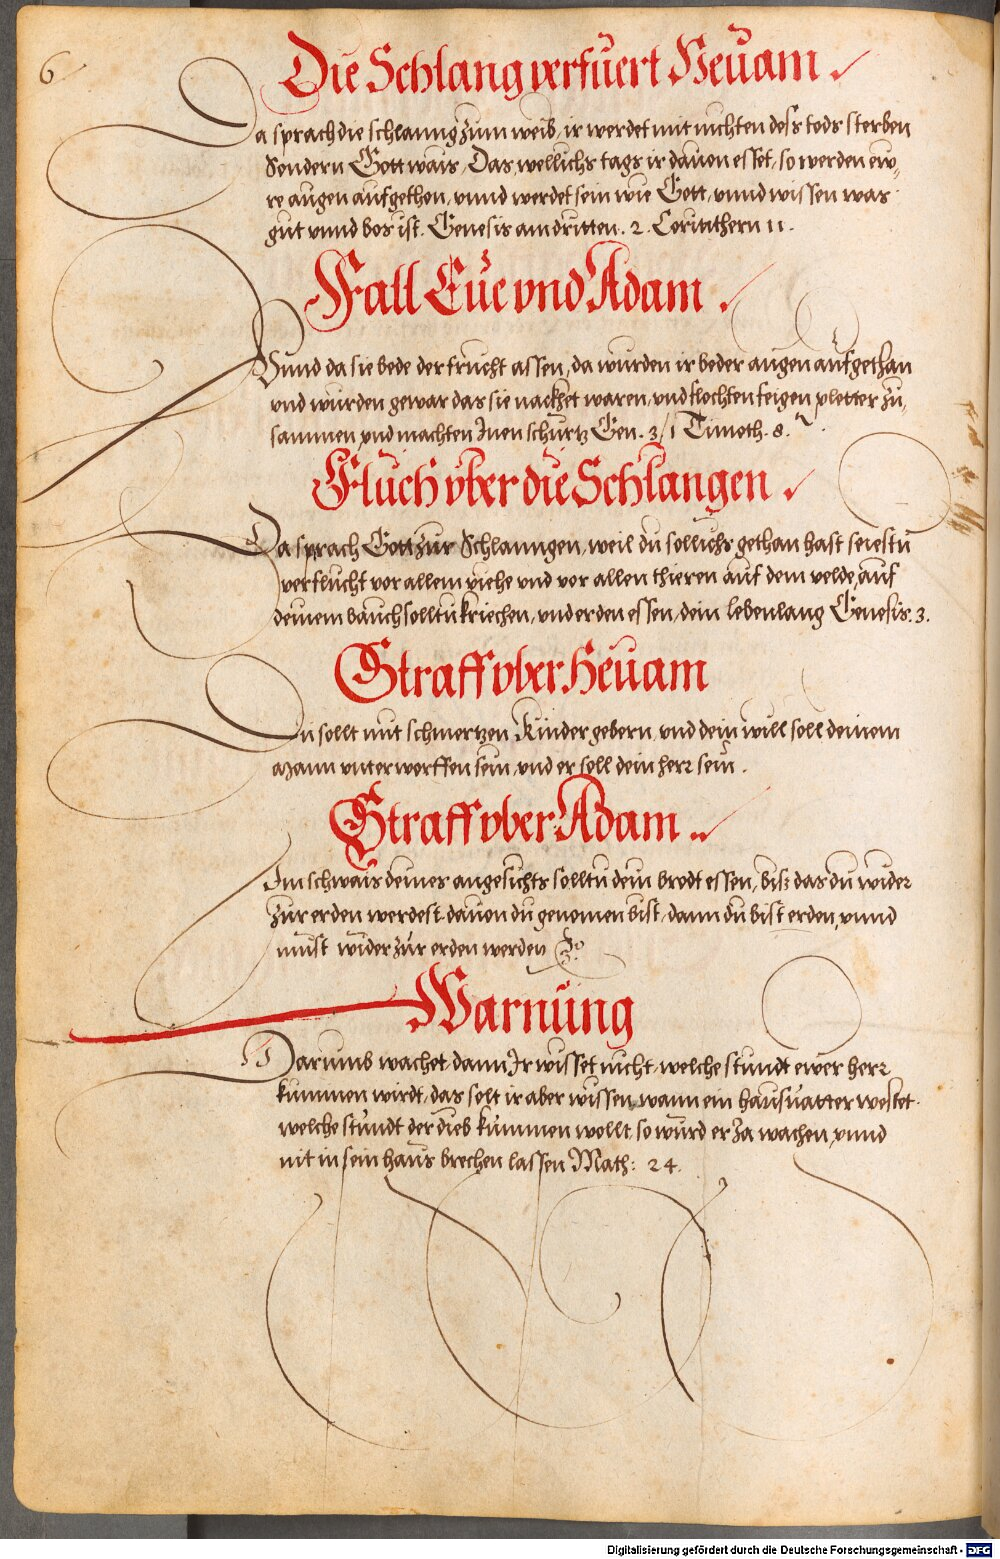 6
Die Schlang verfüert Heüam.
Da sprach die schlanng zum weib, ir werdet mit nichten dess tods sterben
Sondern Gott wais, Das, wellichs tags ir dauon esset, so werden ew,,
re augen aufgethon, vnnd werdet sein wie Gott, vnnd wissen was
gut vnnd bos ist. Genesis am dritten. 2. Corintthern 11.
Fall Eüe vnd Adam.
Vnnd da sie bede der frucht assen, da wurden ir beder augen aufgethan
vnd wurden gewar das sie nackhet waren, vnd flochten feigen pletter zu,
sammen, vnd machten Inen schurtz Gen. 3/1 Timoth. 8.
Fluch vber die Schlangen.
Da sprach Gott zur Schlanngen, weil du sollichs gethan hast seiestu
verflucht vor allem viehe vnd vor allen thieren auf dem velde, auf
deinem bauch solltu kriechen, vnd erden essen, dein lebenlang Genesis. 3.
Straff vber Heüam
Du sollt mit schmertzen Kinder gebern, vnd dein will soll deinem
Mann vnterworffen sein, vnd er soll dein herr sein.
Straff vber Adam..
Im schwais deines angesichts solltu dein brodt essen, bis das du wider
zur erden werdest dauon du genomen bist, dann du bist erden, vnnd
must wider zur erden werden
Warnüng
Darumb wachet dann Ir wisset nicht, welche stundt ewer herr
kummen wirdt, das solt ir aber wissen, wann ein hausuatter westet
welche stundt der dieb kummen wollt, so wurd er Ja wachen, vnnd
nit in sein haus brechen lassen Math: 24.
Digitalisierung gefördert durch die Deutsche Forschungsgemeinschaft - DFG